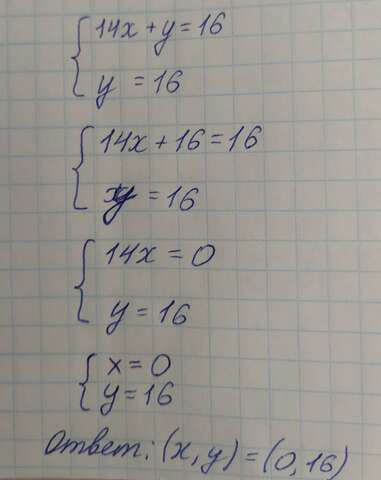 14x + y = 16
y = 16
14x + 16 = 16
y = 16
14x = 0
y = 16
x = 0
y = 16
Ответ: (x, y) = (0, 16)